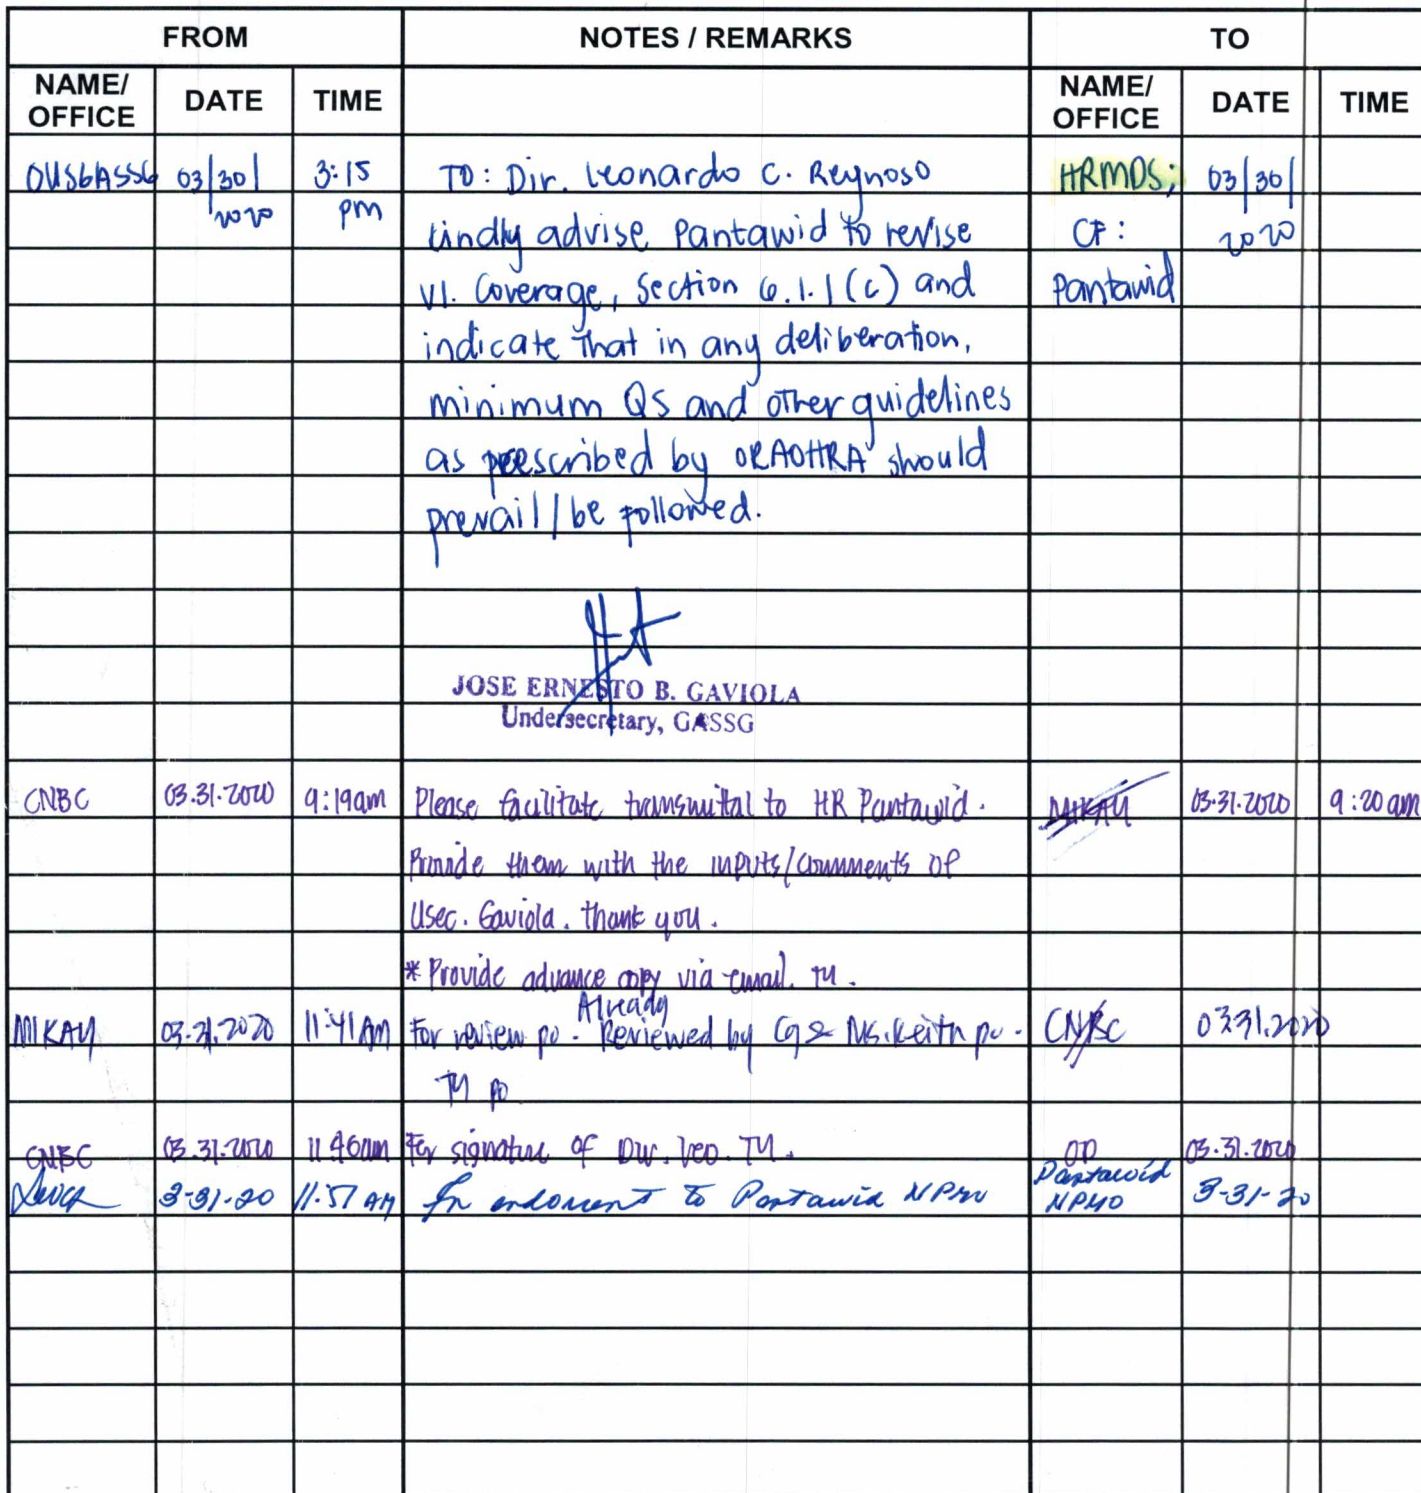 FROM NOTES / REMARKS TO
NAME/ OFFICE DATE TIME NAME/ OFFICE DATE TIME
OUSGASSG 03/30/ 3:15 TO: Dir. Leonardo C. Reynoso HRMDS; 03/30/
2020 pm kindly advise Pantawid to revise CF: 2020
VI. Coverage, Section 6.1.1 (c) and Pantawid
indicate that in any deliberation,
minimum QS and other guidelines
as prescribed by ORAOHRA should
prevail / be followed.
JOSE ERNESTO B. GAVIOLA
Undersecretary, GASSG
CNBC 03.31.2020 9:19am Please facilitate transmittal to HR Pantawid. MIKAY 03.31.2020 9:20am
Provide them with the inputs/comments of
Usec. Gaviola. thank you.
* Provide advance copy via email. TY.
Already
MIKAY 03.31.2020 11:41AM For review po. Reviewed by Ms. Keith po. CNBC 03.31.2020
TY po
CNBC 03.31.2020 11:46am For signature of Dir. Leo. TY. OD 03.31.2020
3-31-20 11:57 AM endorsement to Pantawid NPMO Pantawid NPMO 3-31-20